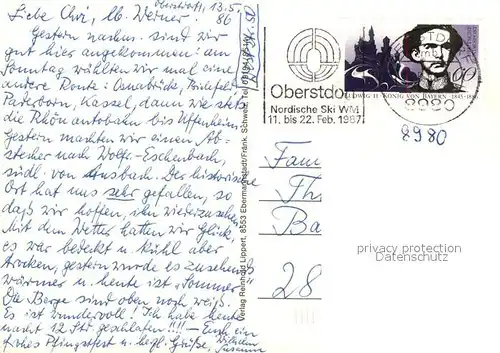 Oberstdorf, 13.5.
86
Liebe Chri, lb. Werner!
Gestern nachm. sind wir
gut hier angekommen: am
Sonntag wählten wir mal eine
andere Route: Osnabrück, Bielefeld
Paderborn, Kassel, dann wie stets
die Rhönautobahn bis Uffenheim.
Gestern machten wir einen Ab-
stecher nach Wolfr.-Eschenbach,
südl. von Ansbach. Der historische
Ort hat uns sehr gefallen, so
daß wir hoffen, ihn wiederzusehen.
Mit dem Wetter hatten wir Glück,
es war bedeckt u. kühl aber
trocken, gestern wurde es zusehends
wärmer u. heute ist "Sommer"
Die Berge sind oben noch weiß.
Es ist wundervoll! Ich habe heute
nacht 12 Std. geschlafen!!!! - Euch ein
frohes Pfingstfest u. herzl. Grüße,
Susanne
Verlag Reinhold Lippert, 8553 Ebermannstadt/Fränk. Schweiz, Tel.
Oberstdorf
Nordische Ski WM
11. bis 22. Feb. 1987
LUDWIG II. KÖNIG VON BAYERN
8980
8980
Fam
Th
Ba
28
privacy protection
Datenschutz